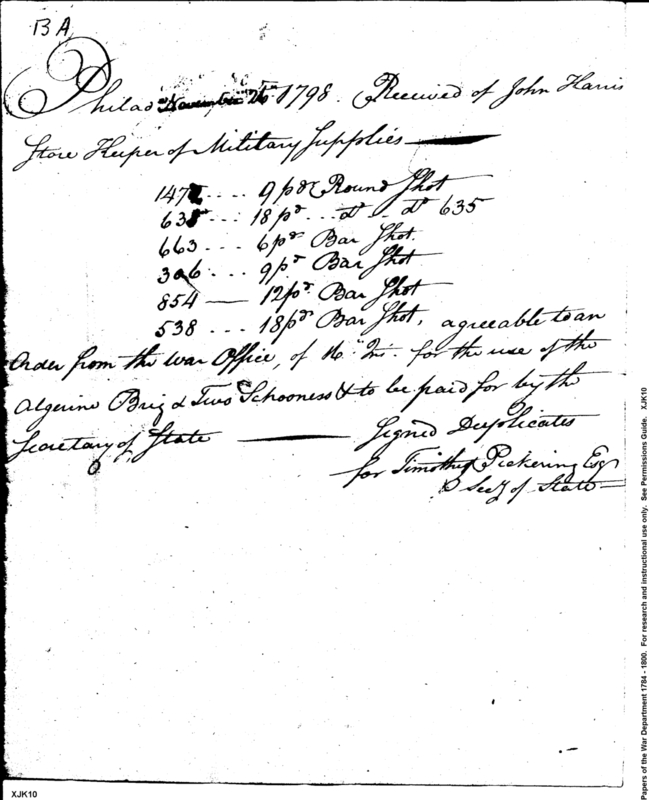 BA
Philad November 26th 1798. Received of John Harris
Store Keeper of Military Supplies
147 .... 9 pdr Round Shot
635 ... 18 pdr ... do - do 635
663 ... 6 pdr Bar Shot.
306 ... 9 pdr Bar Shot
854 — 12 pdr. Bar Shot
538 ... 18 pdr Bar Shot, agreeable to an
Order from the War Office, of for the use of the
Algerine Brig & Two Schooners & to be paid for by the
Secretary of State — Signed Duplicates
for Timothy Pickering Esq
Secy of State
XJK10
Papers of the War Department 1784 - 1800. For research and instructional use only. See Permissions Guide. XJK10